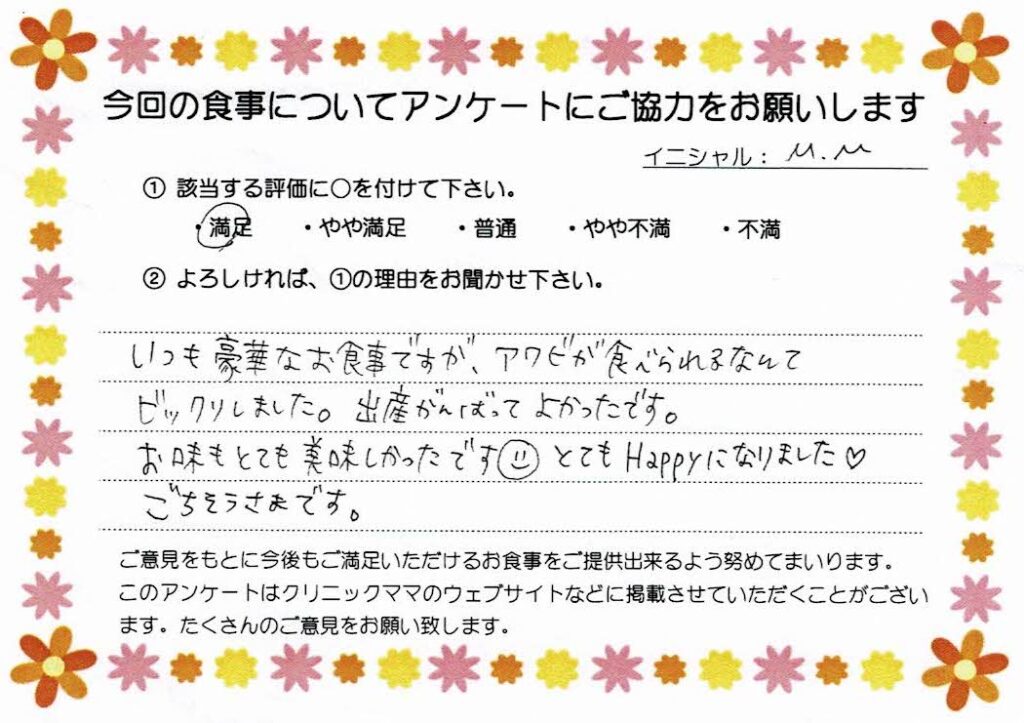 今回の食事についてアンケートにご協力をお願いします
イニシャル： M.M
① 該当する評価に○を付けて下さい。
・満足 ・やや満足 ・普通 ・やや不満 ・不満
② よろしければ、①の理由をお聞かせ下さい。
いつも豪華なお食事ですが、アワビが食べられるなんて
ビックリしました。出産がんばってよかったです。
お味もとても美味しかったです☺とてもHappyになりました♡
ごちそうさまです。
ご意見をもとに今後もご満足いただけるお食事をご提供出来るよう努めてまいります。
このアンケートはクリニックママのウェブサイトなどに掲載させていただくことがござい
ます。たくさんのご意見をお願い致します。